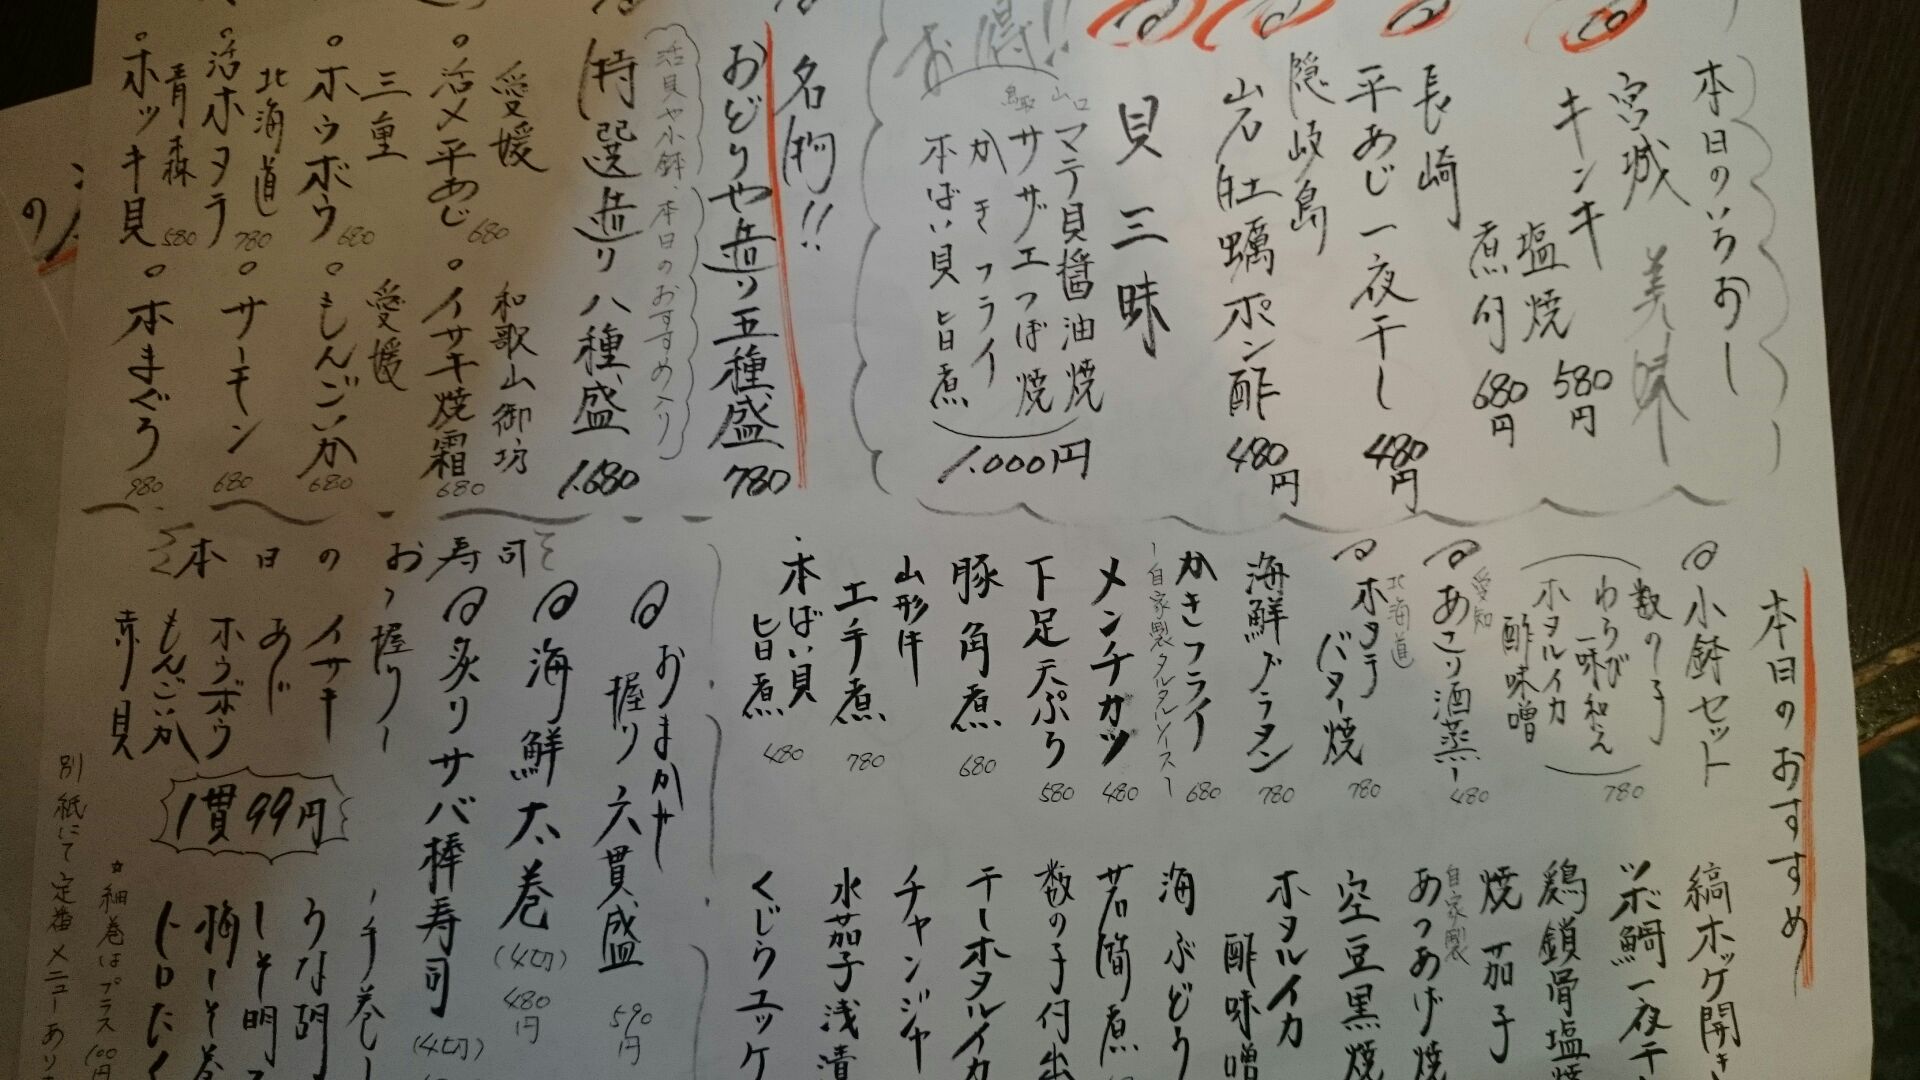 本日のいちおし
宮城
美味
キンキ
塩焼 580円
煮付 680円
長崎
平あじ一夜干し 480円
隠岐島
岩牡蠣ポン酢 480円
お得!!
貝三昧
山口
マテ貝醤油焼
鳥取
サザエつぼ焼
かきフライ
本ばい貝旨煮
1.000円
名物!!
おどりや造り五種盛 780
活貝や小鉢、本日のおすすめ入り
特選造り八種盛 1.680
愛媛
活〆平あじ 680
三重
ホウボウ 680
北海道
活ホタテ 780
青森
ホッキ貝 580
和歌山御坊
イサキ焼霜 680
愛媛
もんごいか 680
サーモン 680
本まぐろ 980
本日のおすすめ
小鉢セット
数の子
わらび一味和え
ホタルイカ酢味噌
780
愛知
あさり酒蒸し 480
北海道
ホタテバター焼 780
海鮮グラタン 780
かきフライ 680
-自家製タルタルソース-
メンチカツ 480
下足天ぷら 580
豚角煮 680
山形牛
エ手煮 780
本ばい貝旨煮 480
縞ホッケ開き
ツボ鯛一夜干
鶏鎖骨塩焼
焼茄子
自家製
あつあげ焼
空豆黒焼
ホタルイカ酢味噌
海ぶどう
若筍煮
数の子付出
干しホタルイカ
チャンジャ
水茄子浅漬
くじらユッケ
本日のお寿司
おまかせ
握り六貫盛 590円
海鮮太巻 (4切) 480円
炙りサバ棒寿司 (4切)
-握り-
イサキ
あじ
ホウボウ
もんごいか
赤貝
1貫99円
-手巻-
うな胡
しそ明
梅しそ巻
トロたく
☆細巻はプラス100円
別紙にて定番メニューあり